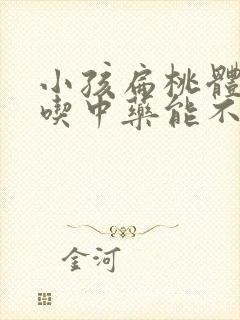 小孩扁桃體
喫中藥能不
金河